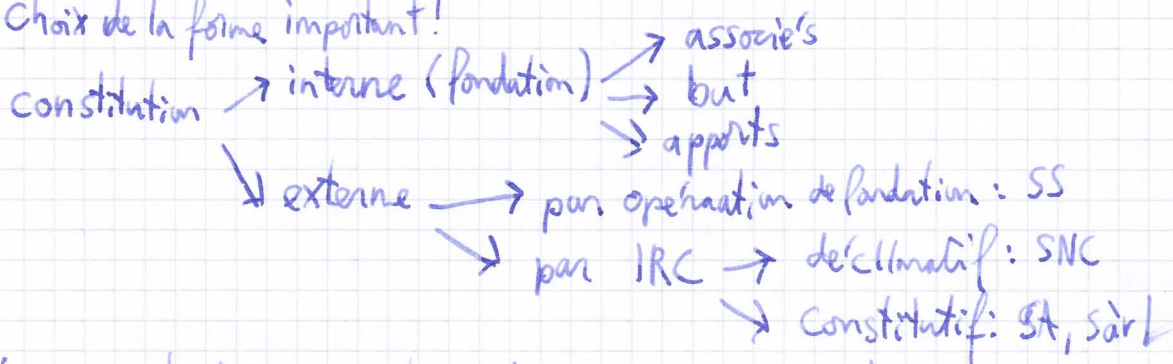 Choix de la forme important!
constitution → interne (fondation) → associés
→ but
→ apports
→ externe → par opération de fondation : SS
→ par IRC → déclaratif : SNC
→ constitutif : SA, Sàrl